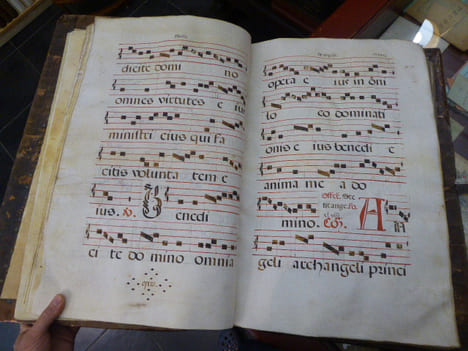 dicite domi no
omnes virtutes e ius
ministri eius qui fa
citis volunta tem e
ius. ℣. B enedi
ci te do mino omnia
opera e ius in oni
lo co dominati
onis e ius benedi c
anima me a do
mino.
A n
geli archangeli princi